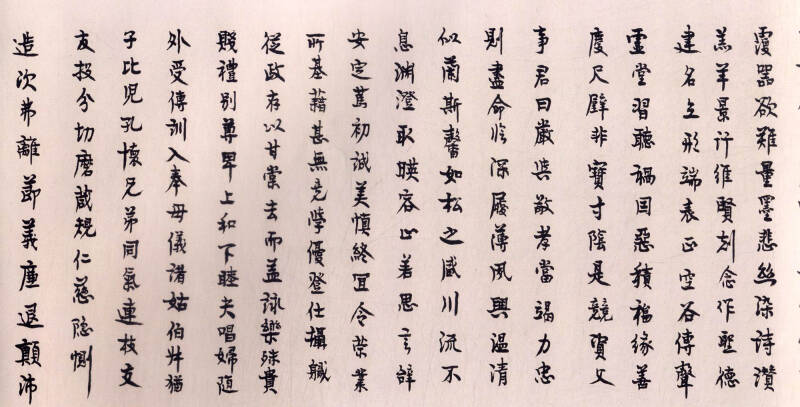 覆器欲難量墨悲絲染詩讚
羔羊景行維賢剋念作聖德
建名立形端表正空谷傳聲
虛堂習聽禍因惡積福緣善
慶尺璧非寶寸陰是競資父
事君曰嚴與敬孝當竭力忠
則盡命臨深履薄夙興溫清
似蘭斯馨如松之盛川流不
息淵澄取暎容止若思言辭
安定篤初誠美慎終宜令榮業
所基藉甚無竟學優登仕攝職
從政存以甘棠去而益詠樂殊貴
賤禮別尊卑上和下睦夫唱婦隨
外受傅訓入奉母儀諸姑伯叔猶
子比兒孔懷兄弟同氣連枝交
友投分切磨箴規仁慈隱惻
造次弗離節義廉退顛沛